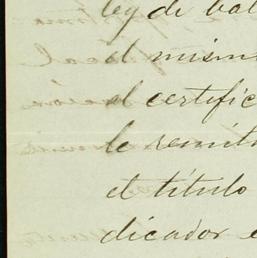 ley de bal
el mismo
el certific
le remito
el título
dicador e